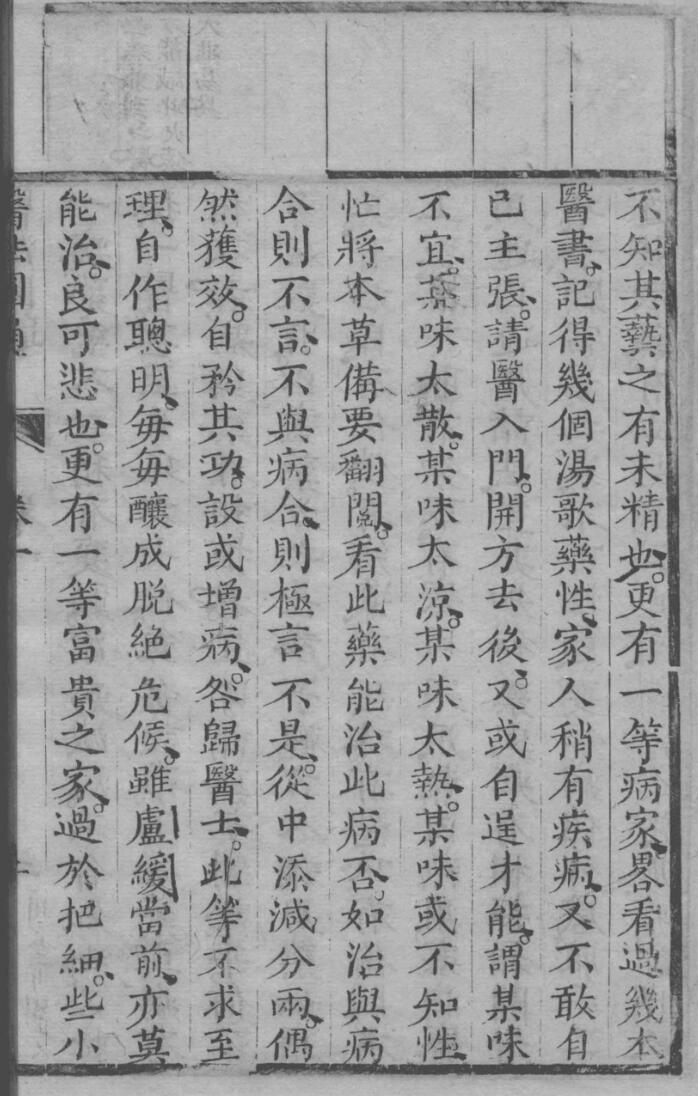 不知其藝之有未精也。更有一等病家。畧看過幾本
醫書。記得幾個湯歌藥性。家人稍有疾病。又不敢自
己主張。請醫入門。開方去後。又或自逞才能。謂某味
不宜。某味太散。某味太涼。某味太熱。某味或不知性。
忙將本草備要翻閱。看此藥能治此病否。如治與病
合則不言。不與病合。則極言不是。從中添減分兩。偶
然獲效。自矜其功。設或增病。咎歸醫士。此等不求至
理。自作聰明。每每釀成脫絕危候。雖盧緩當前。亦莫
能治。良可悲也。更有一等富貴之家。過於把細。些小
醫法圓通 卷一